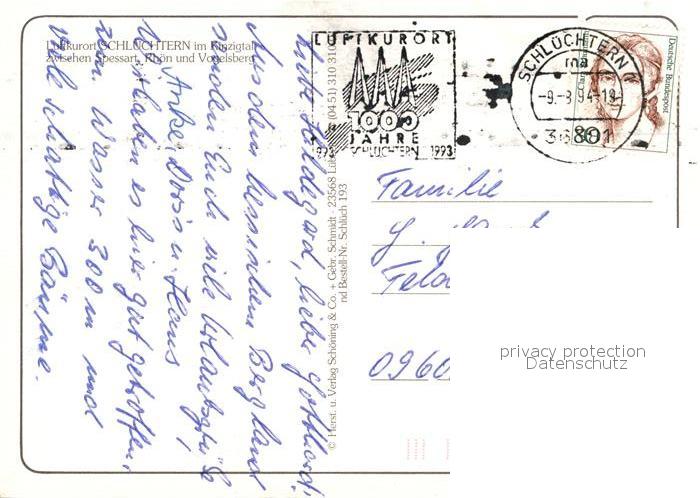 Luftkurort SCHLÜCHTERN im Kinzigtal
zwischen Spessart, Rhön und Vogelsberg
Liebe Hildegard, lieber Gotthard!
Aus dem hessischen Bergland
senden Euch viele Urlaubsgrüße
Anke Doris u. Hans
Wir haben es hier gut getroffen,
zum Wasser 300 m und
viel schattige Bäume.
© Herst. u. Verlag Schöning & Co. + Gebr. Schmidt · 23568 Lüb (0451) 310 310
nd Bestell-Nr. Schlüch 193
LUFTKURORT
1000
JAHRE
993 SCHLÜCHTERN 1993
SCHLÜCHTERN
ma
-9.-8.94-19
36381
Deutsche Bundespost
80
Familie
G.
Feld
0960
privacy protection
Datenschutz